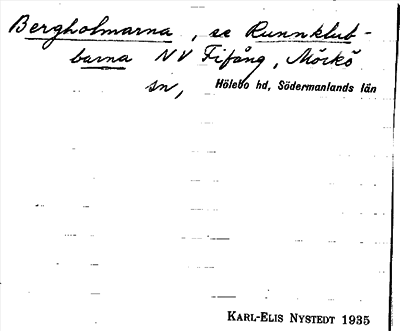 Bergholmarna, se Runnklub-
barna NV Fifång, Mörkö
sn, Hölebo hd, Södermanlands län
KARL-ELIS NYSTEDT 1935